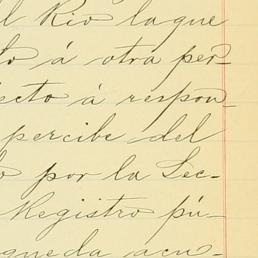 l Rio la que
to á otra per-
ecto á respon-
percibe del
o por la Sec-
Registro pú-
queda acu-